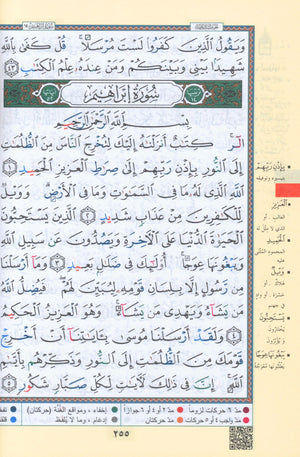 وَيَقُولُ الَّذِينَ كَفَرُوا لَسْتَ مُرْسَلًا ۚ قُلْ كَفَىٰ بِاللَّهِ
شَهِيدًا بَيْنِي وَبَيْنَكُمْ وَمَنْ عِندَهُ عِلْمُ الْكِتَابِ ﴿٤٣﴾
سُورَةُ إِبْرَاهِيمَ
بِسْمِ اللَّهِ الرَّحْمَٰنِ الرَّحِيمِ
الر ۚ كِتَابٌ أَنزَلْنَاهُ إِلَيْكَ لِتُخْرِجَ النَّاسَ مِنَ الظُّلُمَاتِ
إِلَى النُّورِ بِإِذْنِ رَبِّهِمْ إِلَىٰ صِرَاطِ الْعَزِيزِ الْحَمِيدِ ﴿١﴾
اللَّهِ الَّذِي لَهُ مَا فِي السَّمَاوَاتِ وَمَا فِي الْأَرْضِ ۗ وَوَيْلٌ
لِّلْكَافِرِينَ مِنْ عَذَابٍ شَدِيدٍ ﴿٢﴾ الَّذِينَ يَسْتَحِبُّونَ
الْحَيَاةَ الدُّنْيَا عَلَى الْآخِرَةِ وَيَصُدُّونَ عَن سَبِيلِ اللَّهِ
وَيَبْغُونَهَا عِوَجًا ۚ أُولَٰئِكَ فِي ضَلَالٍ بَعِيدٍ ﴿٣﴾ وَمَا أَرْسَلْنَا
مِن رَّسُولٍ إِلَّا بِلِسَانِ قَوْمِهِ لِيُبَيِّنَ لَهُمْ ۖ فَيُضِلُّ اللَّهُ
مَن يَشَاءُ وَيَهْدِي مَن يَشَاءُ ۚ وَهُوَ الْعَزِيزُ الْحَكِيمُ
﴿٤﴾ وَلَقَدْ أَرْسَلْنَا مُوسَىٰ بِآيَاتِنَا أَنْ أَخْرِجْ
قَوْمَكَ مِنَ الظُّلُمَاتِ إِلَى النُّورِ وَذَكِّرْهُم بِأَيَّامِ
اللَّهِ ۚ إِنَّ فِي ذَٰلِكَ لَآيَاتٍ لِّكُلِّ صَبَّارٍ شَكُورٍ ﴿٥﴾
بِإِذْنِ رَبِّهِمْ
الْعَزِيزِ
الْحَمِيدِ
وَيْلٌ
يَسْتَحِبُّونَ
يَبْغُونَهَا عِوَجًا
مدّ ٦ حركات لزوماً
مدّ ٢ أو ٤ أو ٦ جوازاً
إخفاء، ومواقع الغُنَّة (حركتان)
مدّ حركتان
إدغام، وما لا يُلفَظ
٢٥٥